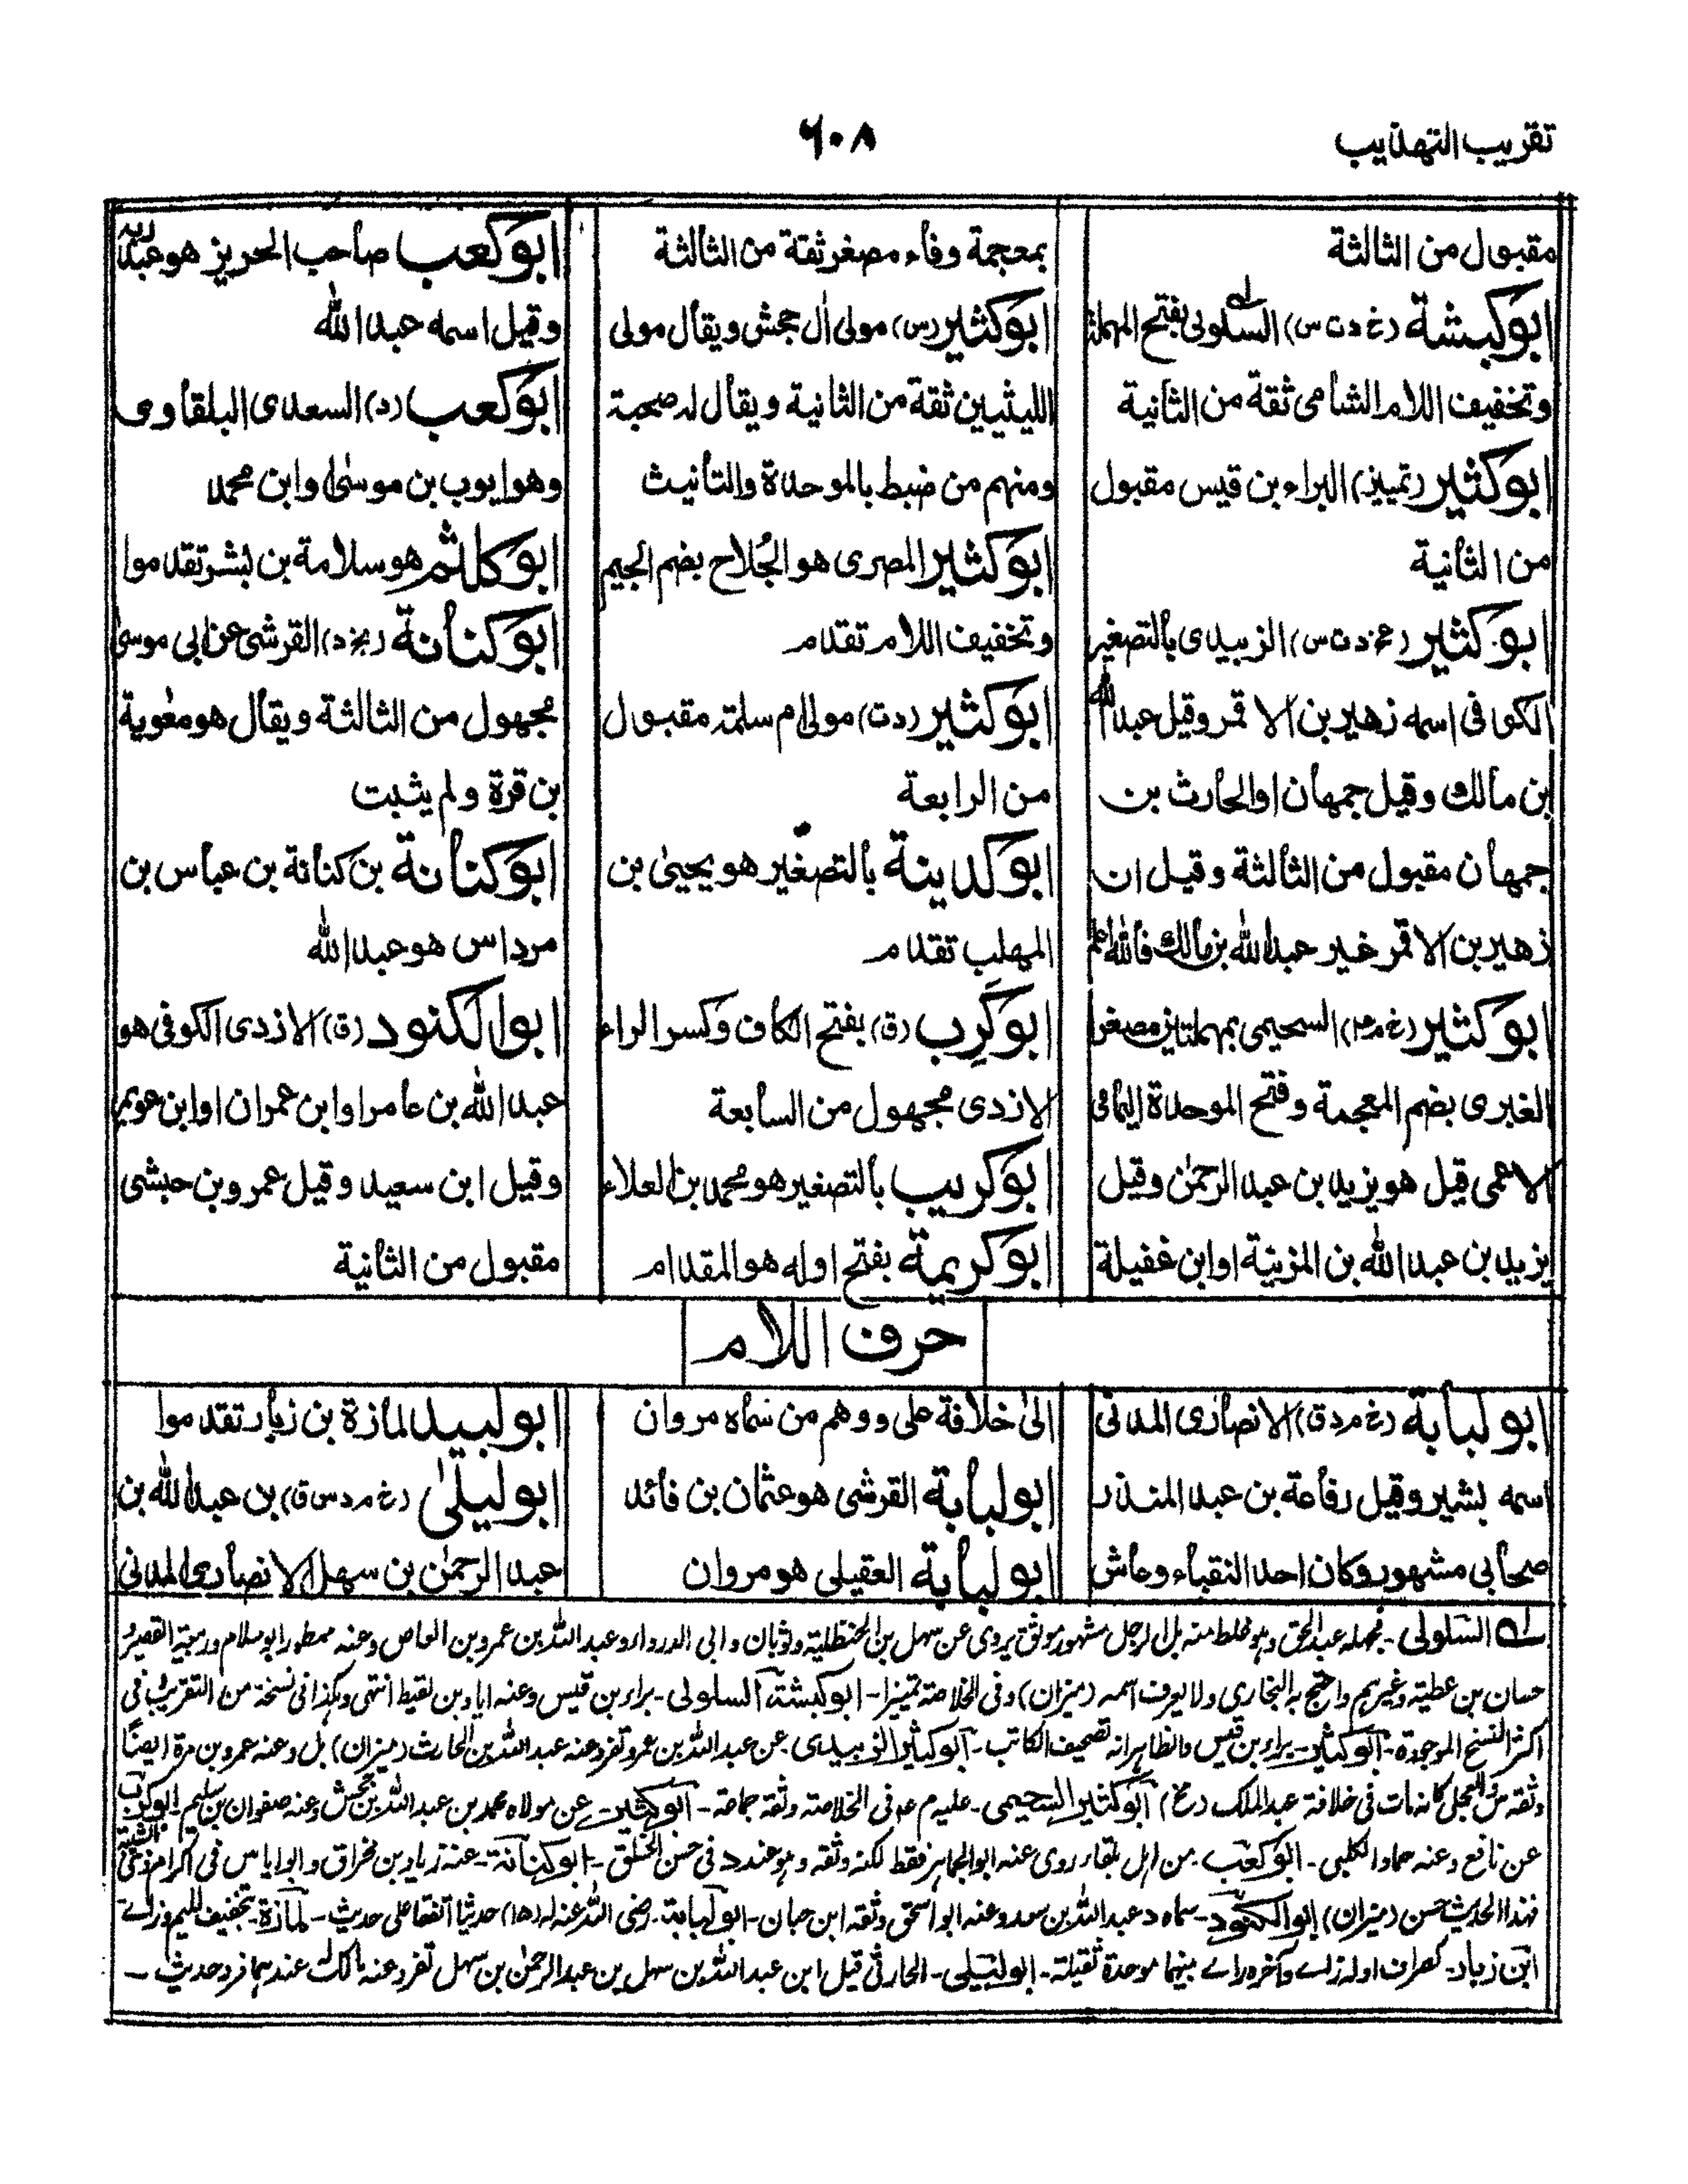 تقریب التهذیب
۶۰۸
مقبول من الثالثة
ابو کبشة (خ د ت س) السلولی بفتح المهملة
وتخفیف اللام الشامی ثقة من الثانیة
ابو کثیر (تمییز) البراء بن قیس مقبول
من الثانیة
ابو کثیر (عخ د ت س) الزبیدی بالتصغیر
الکوفی اسمه زهیر بن الاقمر وقیل عبد الله
ابن مالك وقیل جمهان او الحارث بن
جمهان مقبول من الثالثة وقیل ان
زهیر بن الاقمر غیر عبد الله بن مالك فالله اعلم
ابو کثیر السحیمی بمهملتین مصغرا
الغبری بضم المعجمة وفتح الموحدة الیمامی
الاعمی قیل هو یزید بن عبد الرحمٰن وقیل
یزید بن عبد الله بن المزینة او ابن غفیلة
بمعجمة وفاء مصغر ثقة من الثالثة
ابو کثیر (س) مولی اٰل جحش ویقال مولی
اللیثیین ثقة من الثانیة ویقال له صحبة
ومنهم من ضبط بالموحدة والتانیث
ابو کثیر المصری هو الجُلاح بضم الجیم
وتخفیف اللام تقدم
ابو کثیر (د ت) مولی ام سلمة مقبول
من الرابعة
ابو کدینة بالتصغیر هو یحییٰ بن
المهلب تقدم
ابو کَرِب (ق) بفتح الکاف وکسر الراء
الازدی مجهول من السابعة
ابو کریب بالتصغیر هو محمد بن العلاء
ابو کریمة بفتح اوله هو المقدام
ابو کعب صاحب الحریز هو عبد ربه
وقیل اسمه عبد الله
ابو کعب (د) السعدی البلقاوی
وهو ایوب بن موسیٰ او ابن محمد
ابو کلثم هو سلامة بن بشر تقدموا
ابو کنانة (بخ د) القرشی عن ابی موسیٰ
مجهول من الثالثة ویقال هو معٰویة
بن قرة ولم یثبت
ابو کنانة بن کنانة بن عباس بن
مرداس هو عبد الله
ابو الکنود (ق) الازدی الکوفی هو
عبد الله بن عامر او ابن عمران او ابن عویمر
وقیل ابن سعید وقیل عمرو بن حبشی
مقبول من الثانیة
حرف اللام
ابو لبابة (خ م د ق) الانصاری المدنی
اسمه بشیر وقیل رفاعة بن عبد المنذر
صحابی مشهور وکان احد النقباء وعاش
الیٰ خلافة علی ووهم من سماه مروان
ابو لبابة القرشی هو عثمان بن فائد
ابو لبابة العقیلی هو مروان
ابو لبید لمازة بن زبار تقدموا
ابو لیلیٰ (خ م د س ق) بن عبد الله بن
عبد الرحمٰن بن سهل الانصاری المدنی
له السَّلولی - فجهله عبد الحق وهو غلط منه بل الرجل مشهور موثق یروی عن سهل بن الحنظلیة وثوبان وابی الدرداء وعبد الله بن عمرو بن العاص وعنه ممطور ابو سلام وربیعة القصیر و
حسان بن عطیة وغیرهم واحتج به البخاری ولا یعرف اسمه (میزان) وفی الخلاصة تمییزا - ابو کبشة السلولی - براء بن قیس وعنه ایاد بن لقیط انتهی وکذا فی نسخة من التقریب فی
اکثر النسخ الموجودة - ابو کثیر - براء بن قیس والظاهر انه تصحیف الکاتب - ابو کثیر الزبیدی - عن عبد الله بن عمرو تفرد عنه عبد الله بن الحارث (میزان) بل وعنه عمرو بن مرة ایضًا
وثقه س والعجلی کانه مات فی خلافة عبد الملک ابو کثیر السحیمی - علیه م عه فی الخلاصة وثقه جماعة - ابو کثیر - عن مولاه محمد بن عبد الله بن جحش وعنه صفوان بن سلیم - ابو کرب
عن نافع وعنه حماد الکلبی - ابو کعب - من اهل بلقاء روی عنه ابو الجماهر فقط لکنه وثقه وهو عند د فی حسن الخلق - ابو کنانة - عنه زیاد بن مخراق وابو ایاس فی اکرام ذی الشیبة
فهذا الحدیث حسن (میزان) ابو الکنود - سماه د عبد الله بن سعد وعنه ابو اسحق وثقه ابن حبان - ابو لبابة - رضی الله عنه له حدیثا اتفقا علی حدیث - لمازة - بتخفیف المیم وزاے -
ابن زباد - کصراف اوله زاے وآخره راے بینهما موحدة ثقیلة - ابو لیلی - الحارثی قیل ابن عبد الله بن سهل بن عبد الرحمٰن بن سهل تفرد عنه مالک له عندهما فرد حدیث -